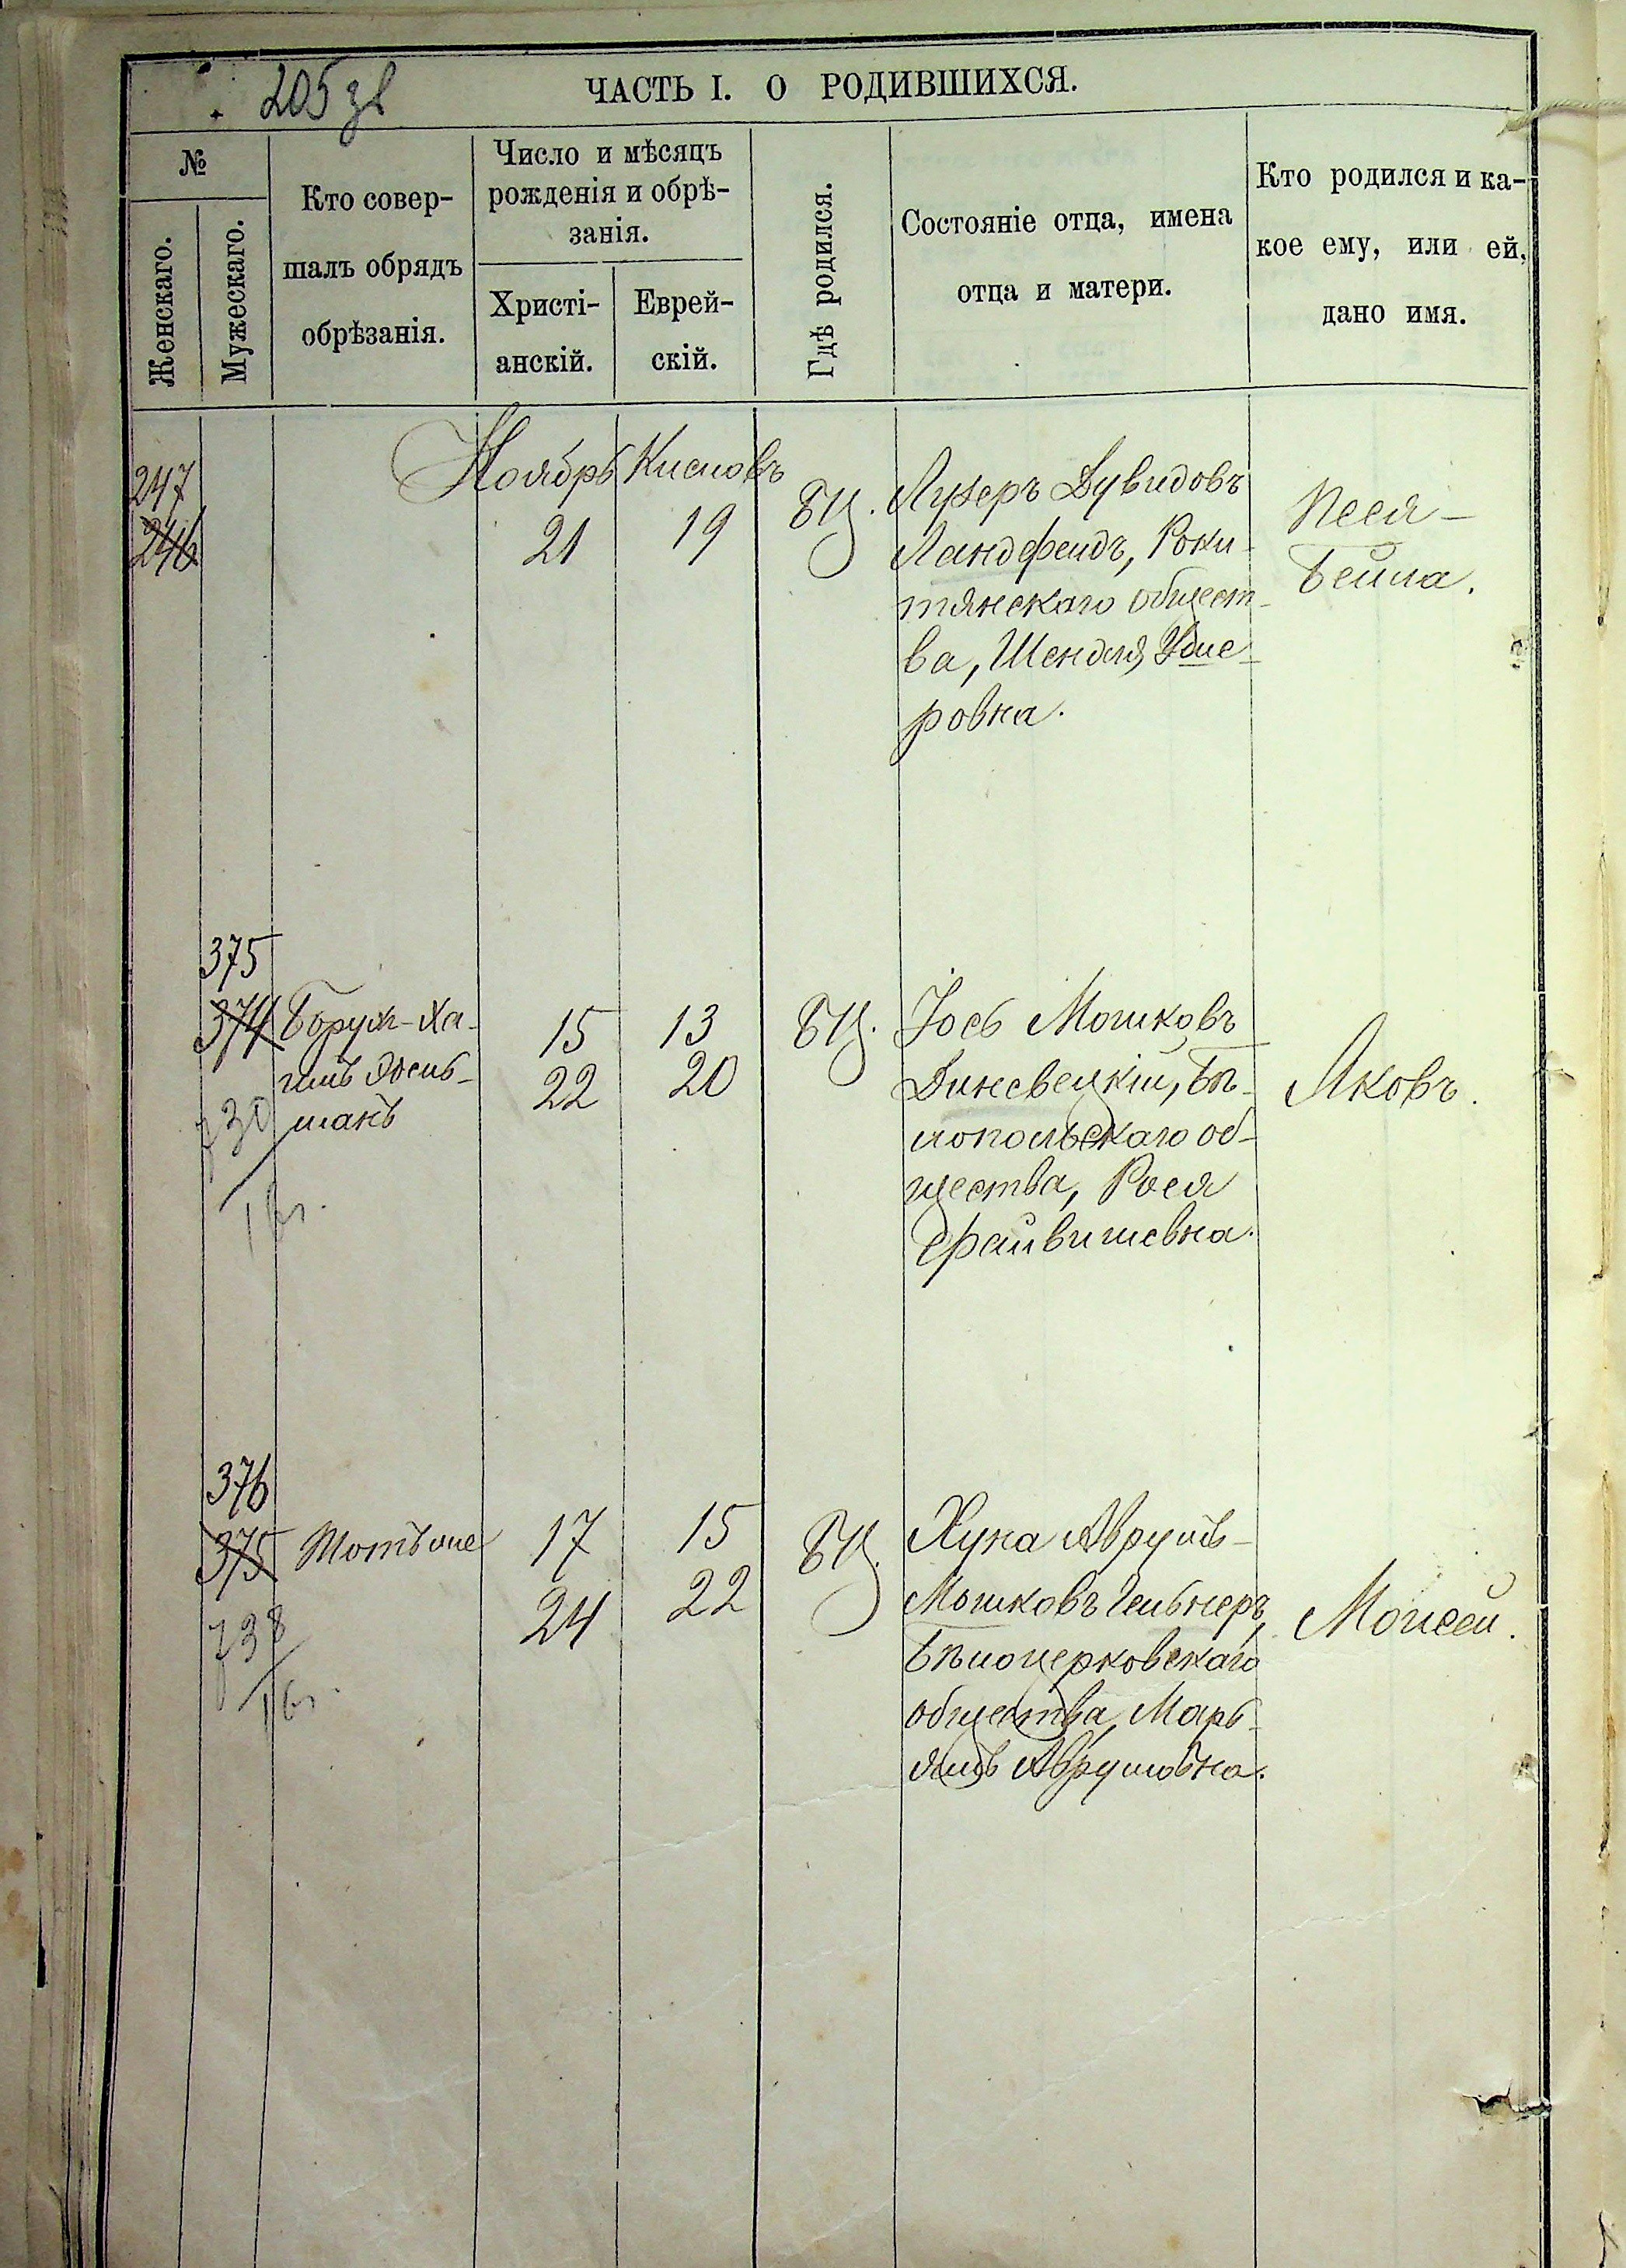 205 зв
ЧАСТЬ I. О РОДИВШИХСЯ.
№
Женскаго.
Мужескаго.
Кто совер-
шалъ обрядъ
обрѣзанія.
Число и мѣсяцъ
рожденія и обрѣ-
занія.
Христі-
анскій.
Еврей-
скій.
Гдѣ родился.
Состояніе отца, имена
отца и матери.
Кто родился и ка-
кое ему, или ей,
дано имя.
Ноябрь Кисловъ
247
246
21
19
БЦ.
Лузеръ Дувидовъ
Ландфельдъ, Роки-
тянскаго общест-
ва, Шендля
ровна.
Песя-
Бейла.
375
374
Борухъ-Ха-
имъ
манъ
15
22
13
20
БЦ.
Іось Мошковъ
Диневецкій, Бѣ-
лопольскаго об-
щества, Рося
Файвишевна.
Яковъ.
376
375
17
24
15
22
БЦ.
Хуна Аврумъ-
Мошковъ Гельнеръ,
Бѣлоцерковскаго
общества, Марь-
ямъ Аврумовна.
Моисей.